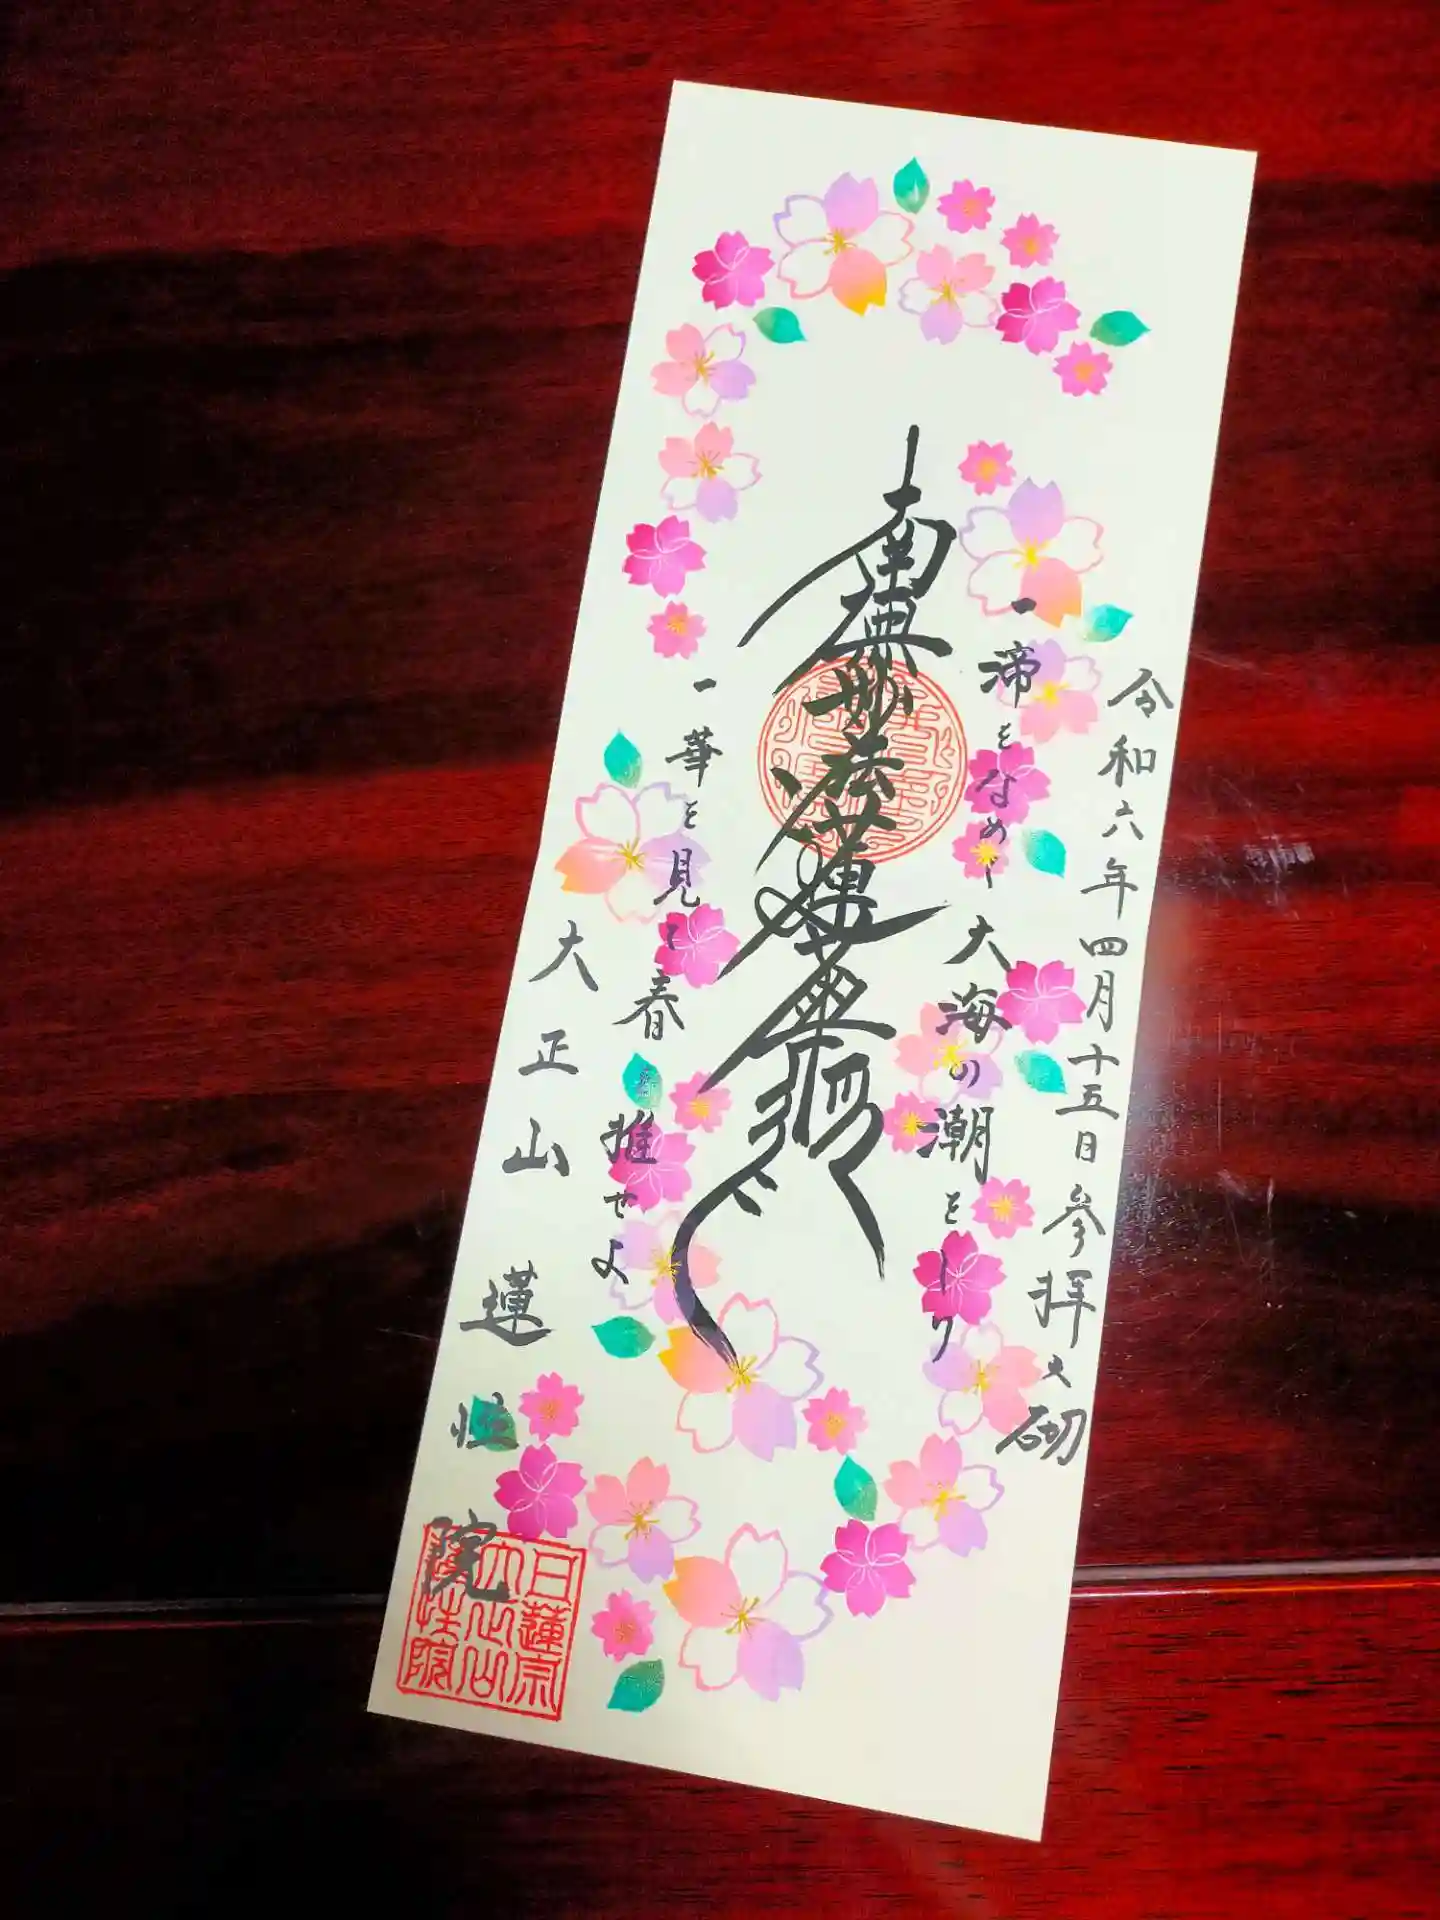 令和六年四月十五日参拝之砌
一渧をなめて大海の潮をしり
南無妙法蓮華経
一華を見て春を推せよ
大正山 蓮性院
日蓮宗
大正山
蓮性院